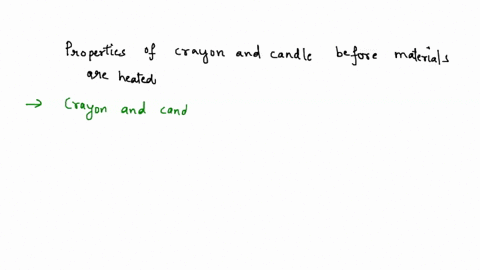 Properties of crayon and candle before materials
are heated
→ Crayon and cand